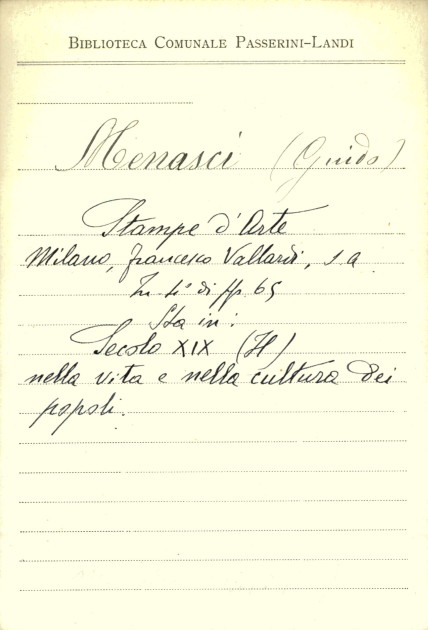 BIBLIOTECA COMUNALE PASSERINI-LANDI
Menasci (Guido)
Stampe d'Arte
Milano, Francesco Vallardi, s. a
In 4° di pp 65
Sta in:
Secolo XIX (Il)
nella vita e nella cultura dei
popoli.